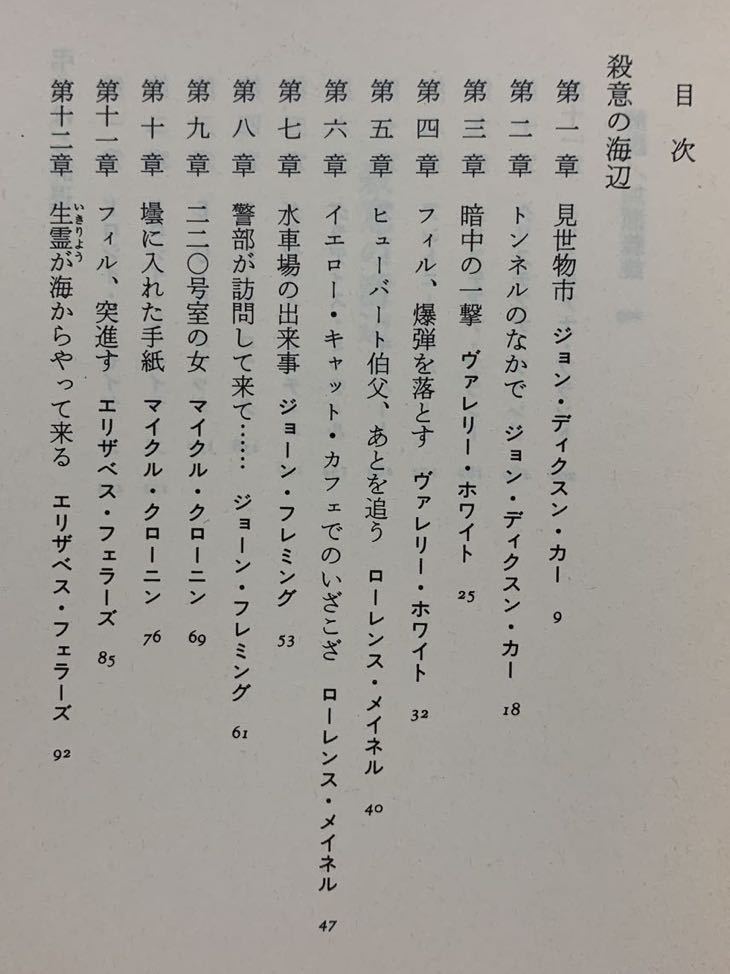 目次
殺意の海辺
第一章　見世物市　ジョン・ディクスン・カー　9
第二章　トンネルのなかで　ジョン・ディクスン・カー　18
第三章　暗中の一撃　ヴァレリー・ホワイト　25
第四章　フィル、爆弾を落とす　ヴァレリー・ホワイト　32
第五章　ヒューバート伯父、あとを追う　ローレンス・メイネル　40
第六章　イエロー・キャット・カフェでのいざこざ　ローレンス・メイネル　47
第七章　水車場の出来事　ジョーン・フレミング　53
第八章　警部が訪問して来て……　ジョーン・フレミング　61
第九章　二二〇号室の女　マイクル・クローニン　69
第十章　壜に入れた手紙　マイクル・クローニン　76
第十一章　フィル、突進す　エリザベス・フェラーズ　85
第十二章　生霊（いきりよう）が海からやって来る　エリザベス・フェラーズ　92